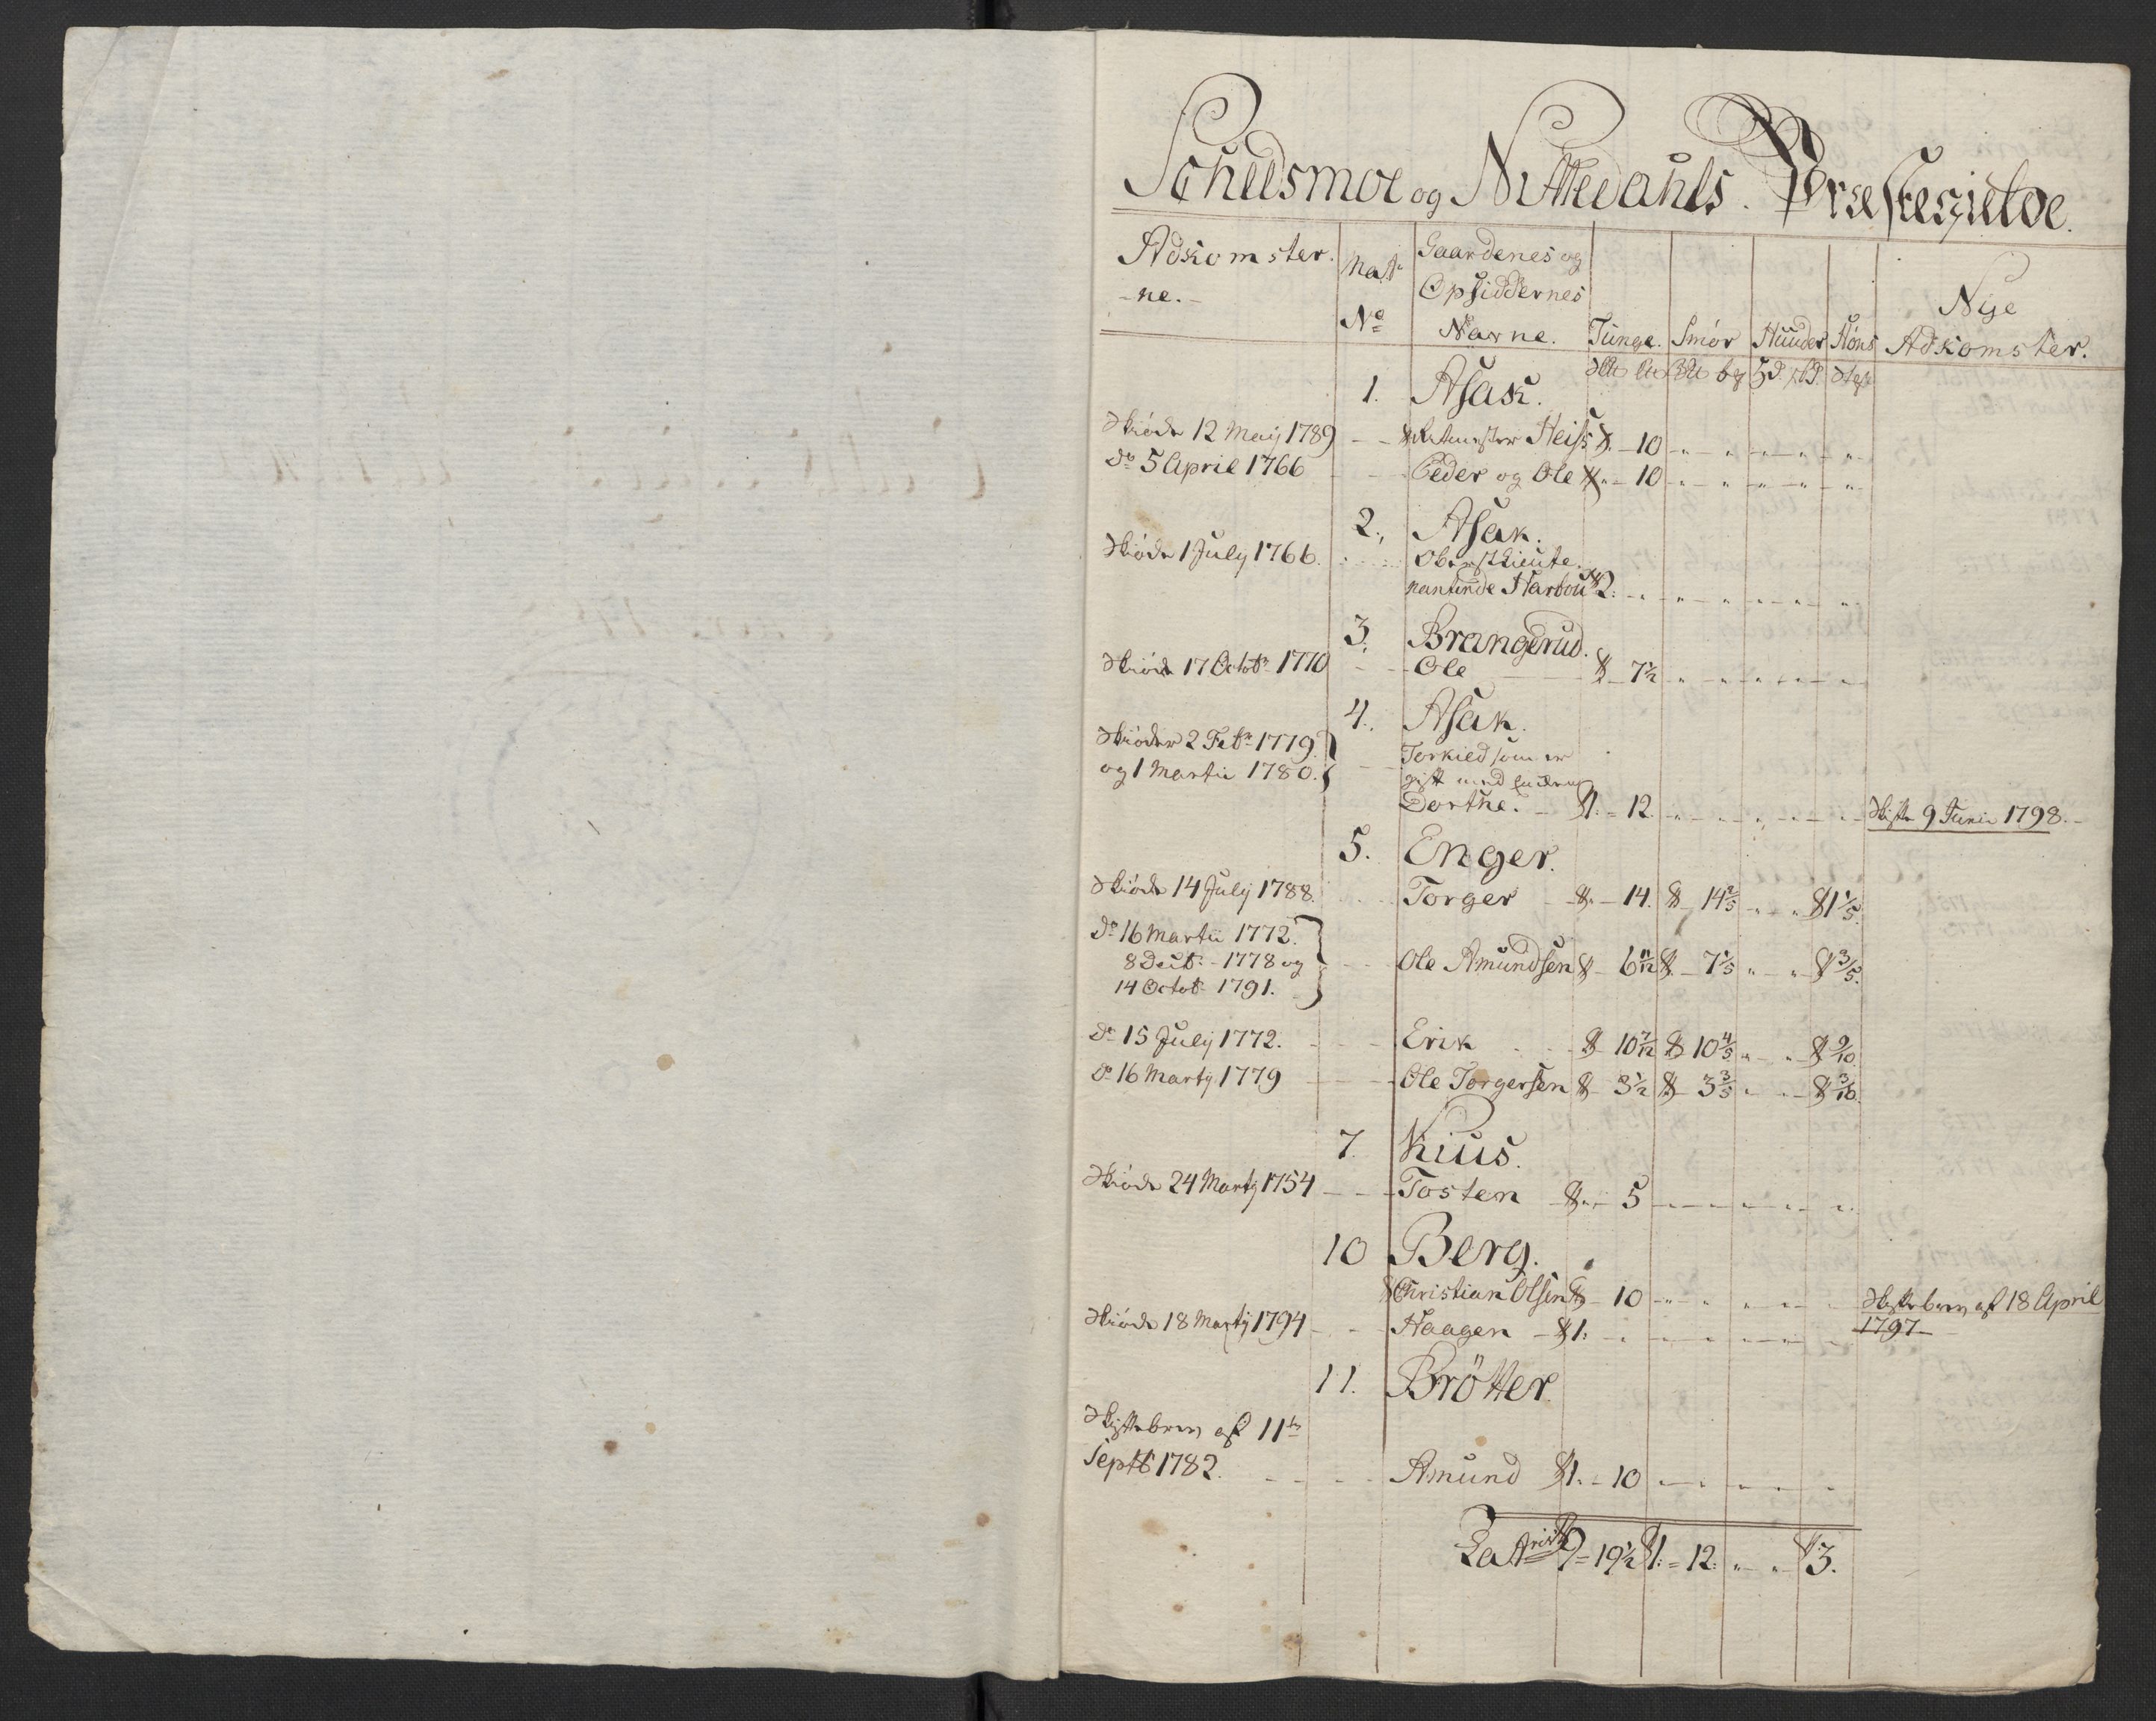 Schedsmoe og Nittedahls Præstegield.
Adkomster-
-ne.
Matr
No
Gaardenes og
Opsiddernes
Navne.
Tunge. Smör Huuder Höns
Nÿe
Adkomster.
1. Asak.
Skiöde 12 Maij 1789 - - Ritmester Heiss 10
Do 5 April 1766 Peder og Ole 10
2. Asak.
Skiöde 1 July 1766. Oberstlieute-
nantinde Harbou 2.
3. Brangerud.
Skiöde 17 Octobr 1770 - - Ole 7 1/2
4. Asak.
Skiöder 2 Febr 1779.
og 1 Martii 1780.
Torkield som er
gift med Enken
Dorthe. 1. - 12. Skifte 9 Junii 1798.
5. Enger.
Skiöde 14 July 1788. Torger 14. 14 2/5 1 1/5.
Do 16 Martii 1772.
8 Decbr - 1778 og
14 Octob 1791.
Ole Amundsen 6 11/12 7 1/5 3/5.
Do 15 Julÿ 1772. Erik 10 7/12 10 4/5 9/10.
Do 16 Martÿ 1779 Ole Torgersen 3 1/2 3 3/5 3/10.
7. Kius.
Skiöde 24 Martÿ 1754 Tosten 5
10 Berg.
Christian Olsen 10 Skiftebrev af 18 April
1797
Skiöde 18 Martÿ 1794 Haagen 1.
11. Brötter.
Skiftebrev af 11te
Septb 1782. Amund 1. - 10
Latris 9 - 19 1/2 1. - 12. 3.